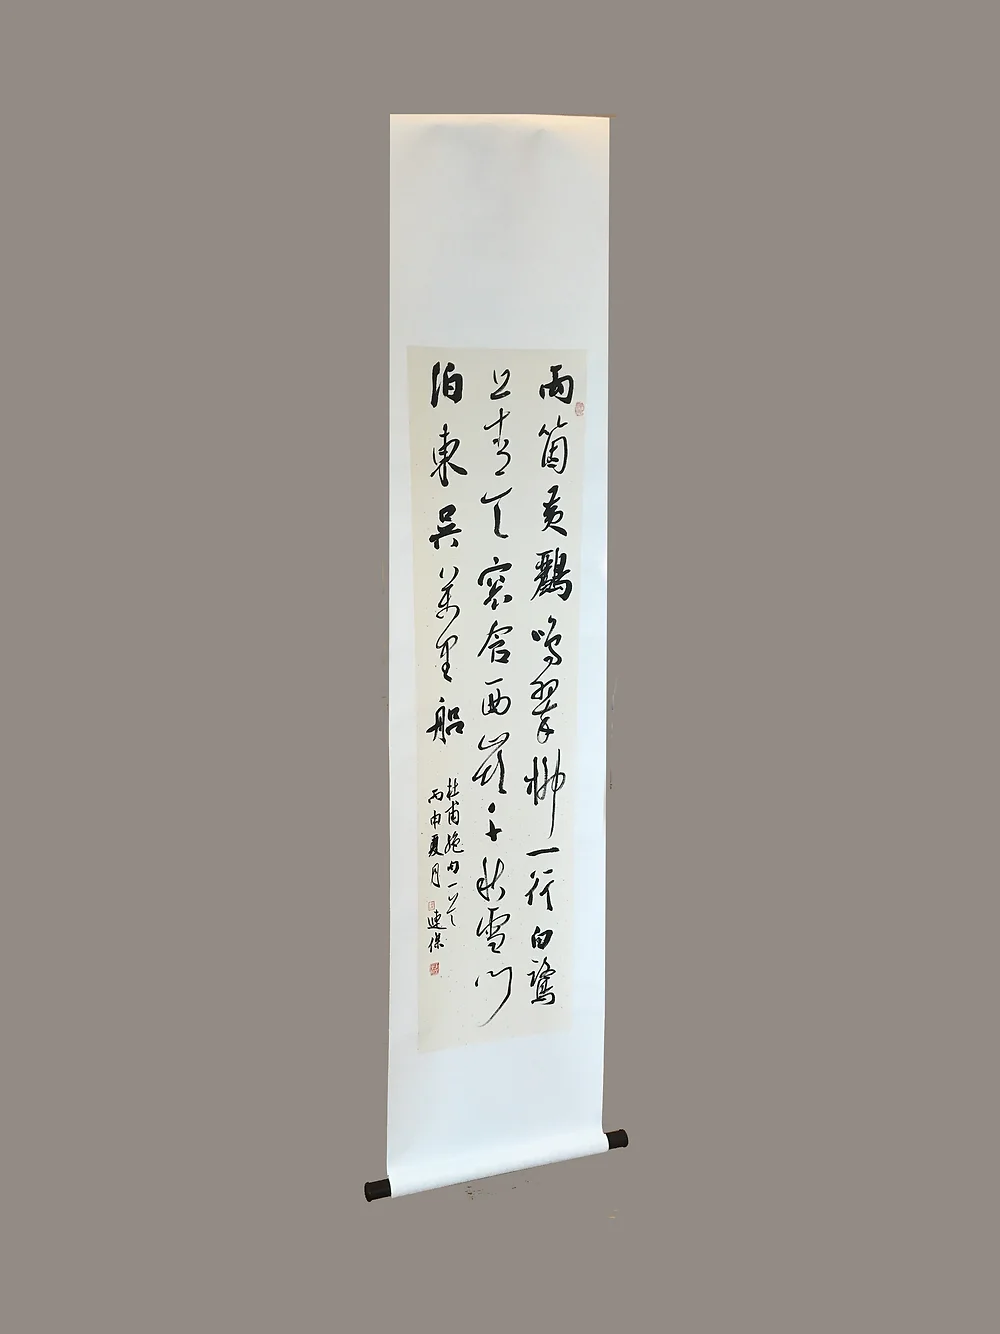 兩箇黃鸝鳴翠柳一行白鷺
上青天窓含西嶺千秋雪門
泊東吳萬里船
杜甫絶句一首
丙申夏月 連保